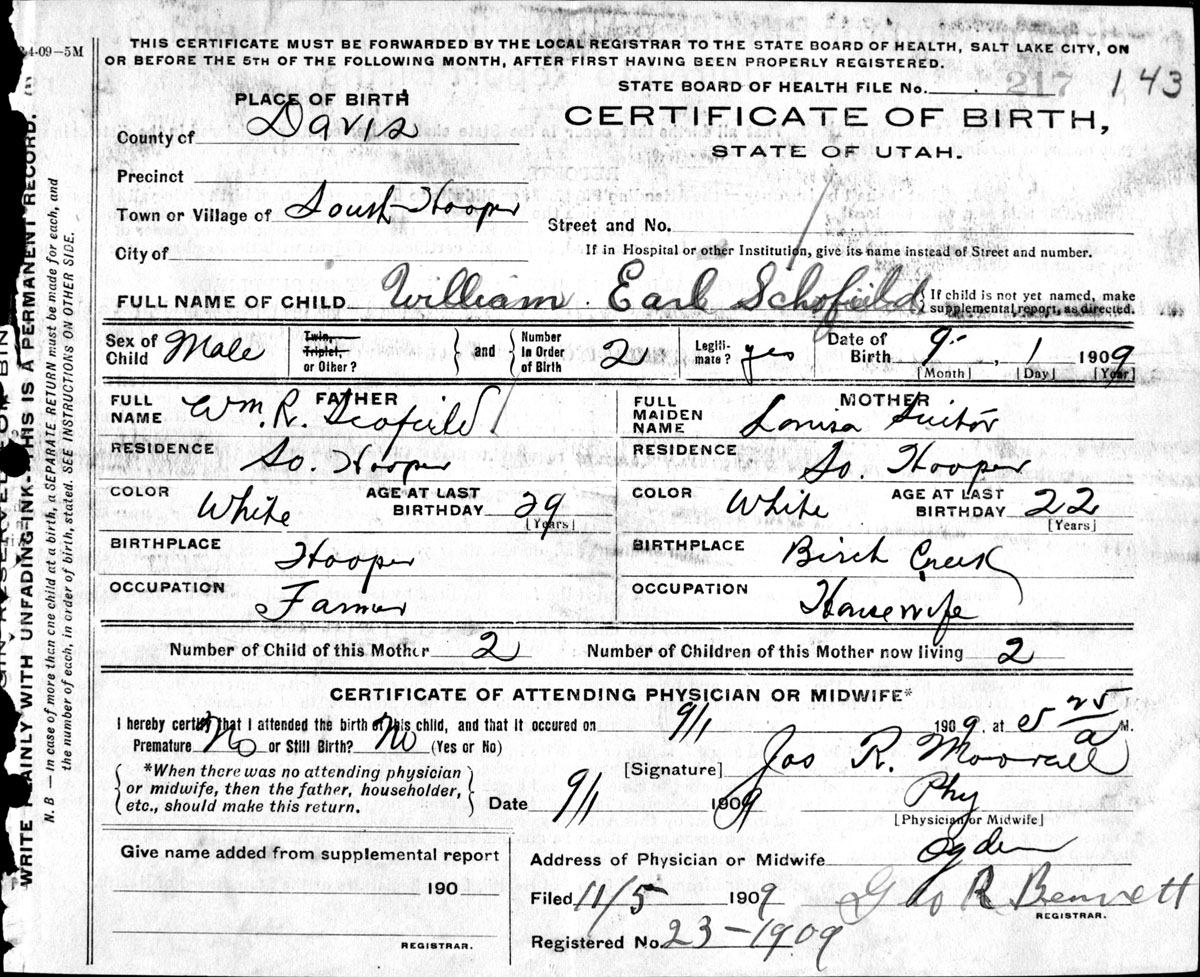 24-09-5M
THIS CERTIFICATE MUST BE FORWARDED BY THE LOCAL REGISTRAR TO THE STATE BOARD OF HEALTH, SALT LAKE CITY, ON
OR BEFORE THE 5TH OF THE FOLLOWING MONTH, AFTER FIRST HAVING BEEN PROPERLY REGISTERED.
STATE BOARD OF HEALTH FILE No. 217 143
PLACE OF BIRTH
County of Davis
CERTIFICATE OF BIRTH,
STATE OF UTAH.
Precinct
Town or Village of South Hooper
Street and No.
City of
If in Hospital or other Institution, give its name instead of Street and number.
FULL NAME OF CHILD William Earl Schofield { If child is not yet named, make supplemental report, as directed.
Sex of Child Male Twin, Triplet, or Other? } and { Number in Order of Birth 2 Legiti-mate? yes Date of Birth 9 , 1 1909
[Month] [Day] [Year]
FATHER
FULL NAME Wm. R. Scofield
RESIDENCE So. Hooper
COLOR White AGE AT LAST BIRTHDAY 29
[Years]
BIRTHPLACE Hooper
OCCUPATION Farmer
MOTHER
FULL MAIDEN NAME Louisa
RESIDENCE So. Hooper
COLOR White AGE AT LAST BIRTHDAY 22
[Years]
BIRTHPLACE Birch Creek
OCCUPATION Housewife
Number of Child of this Mother 2 Number of Children of this Mother now living 2
CERTIFICATE OF ATTENDING PHYSICIAN OR MIDWIFE*
I hereby certify that I attended the birth of this child, and that it occured on 9/1 1909, at 5 25 a M.
Premature No or Still Birth? No (Yes or No)
{ *When there was no attending physician
or midwife, then the father, householder,
etc., should make this return. }
[Signature] Jos R. Morrell
Date 9/1 1909 Phy
[Physician or Midwife]
Give name added from supplemental report
190
REGISTRAR.
Address of Physician or Midwife Ogden
Filed 11/5 1909 Geo R Bennett
REGISTRAR.
Registered No. 23-1909
WRITE PLAINLY WITH UNFADING INK—THIS IS A PERMANENT RECORD.
N. B — In case of more than one child at a birth, a SEPARATE RETURN must be made for each, and
the number of each, in order of birth, stated. SEE INSTRUCTIONS ON OTHER SIDE.